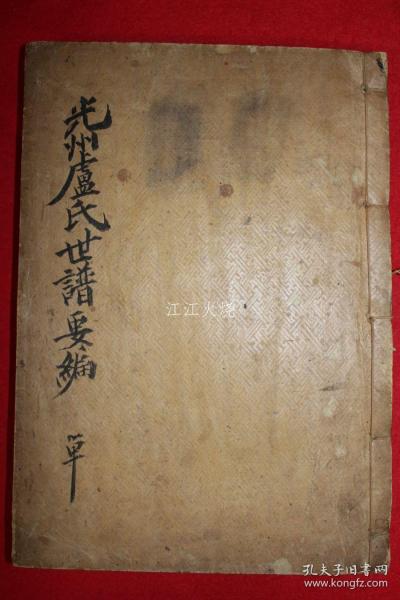 光州盧氏世譜要編 單
江江火烧
孔夫子旧书网
www.kongfz.com